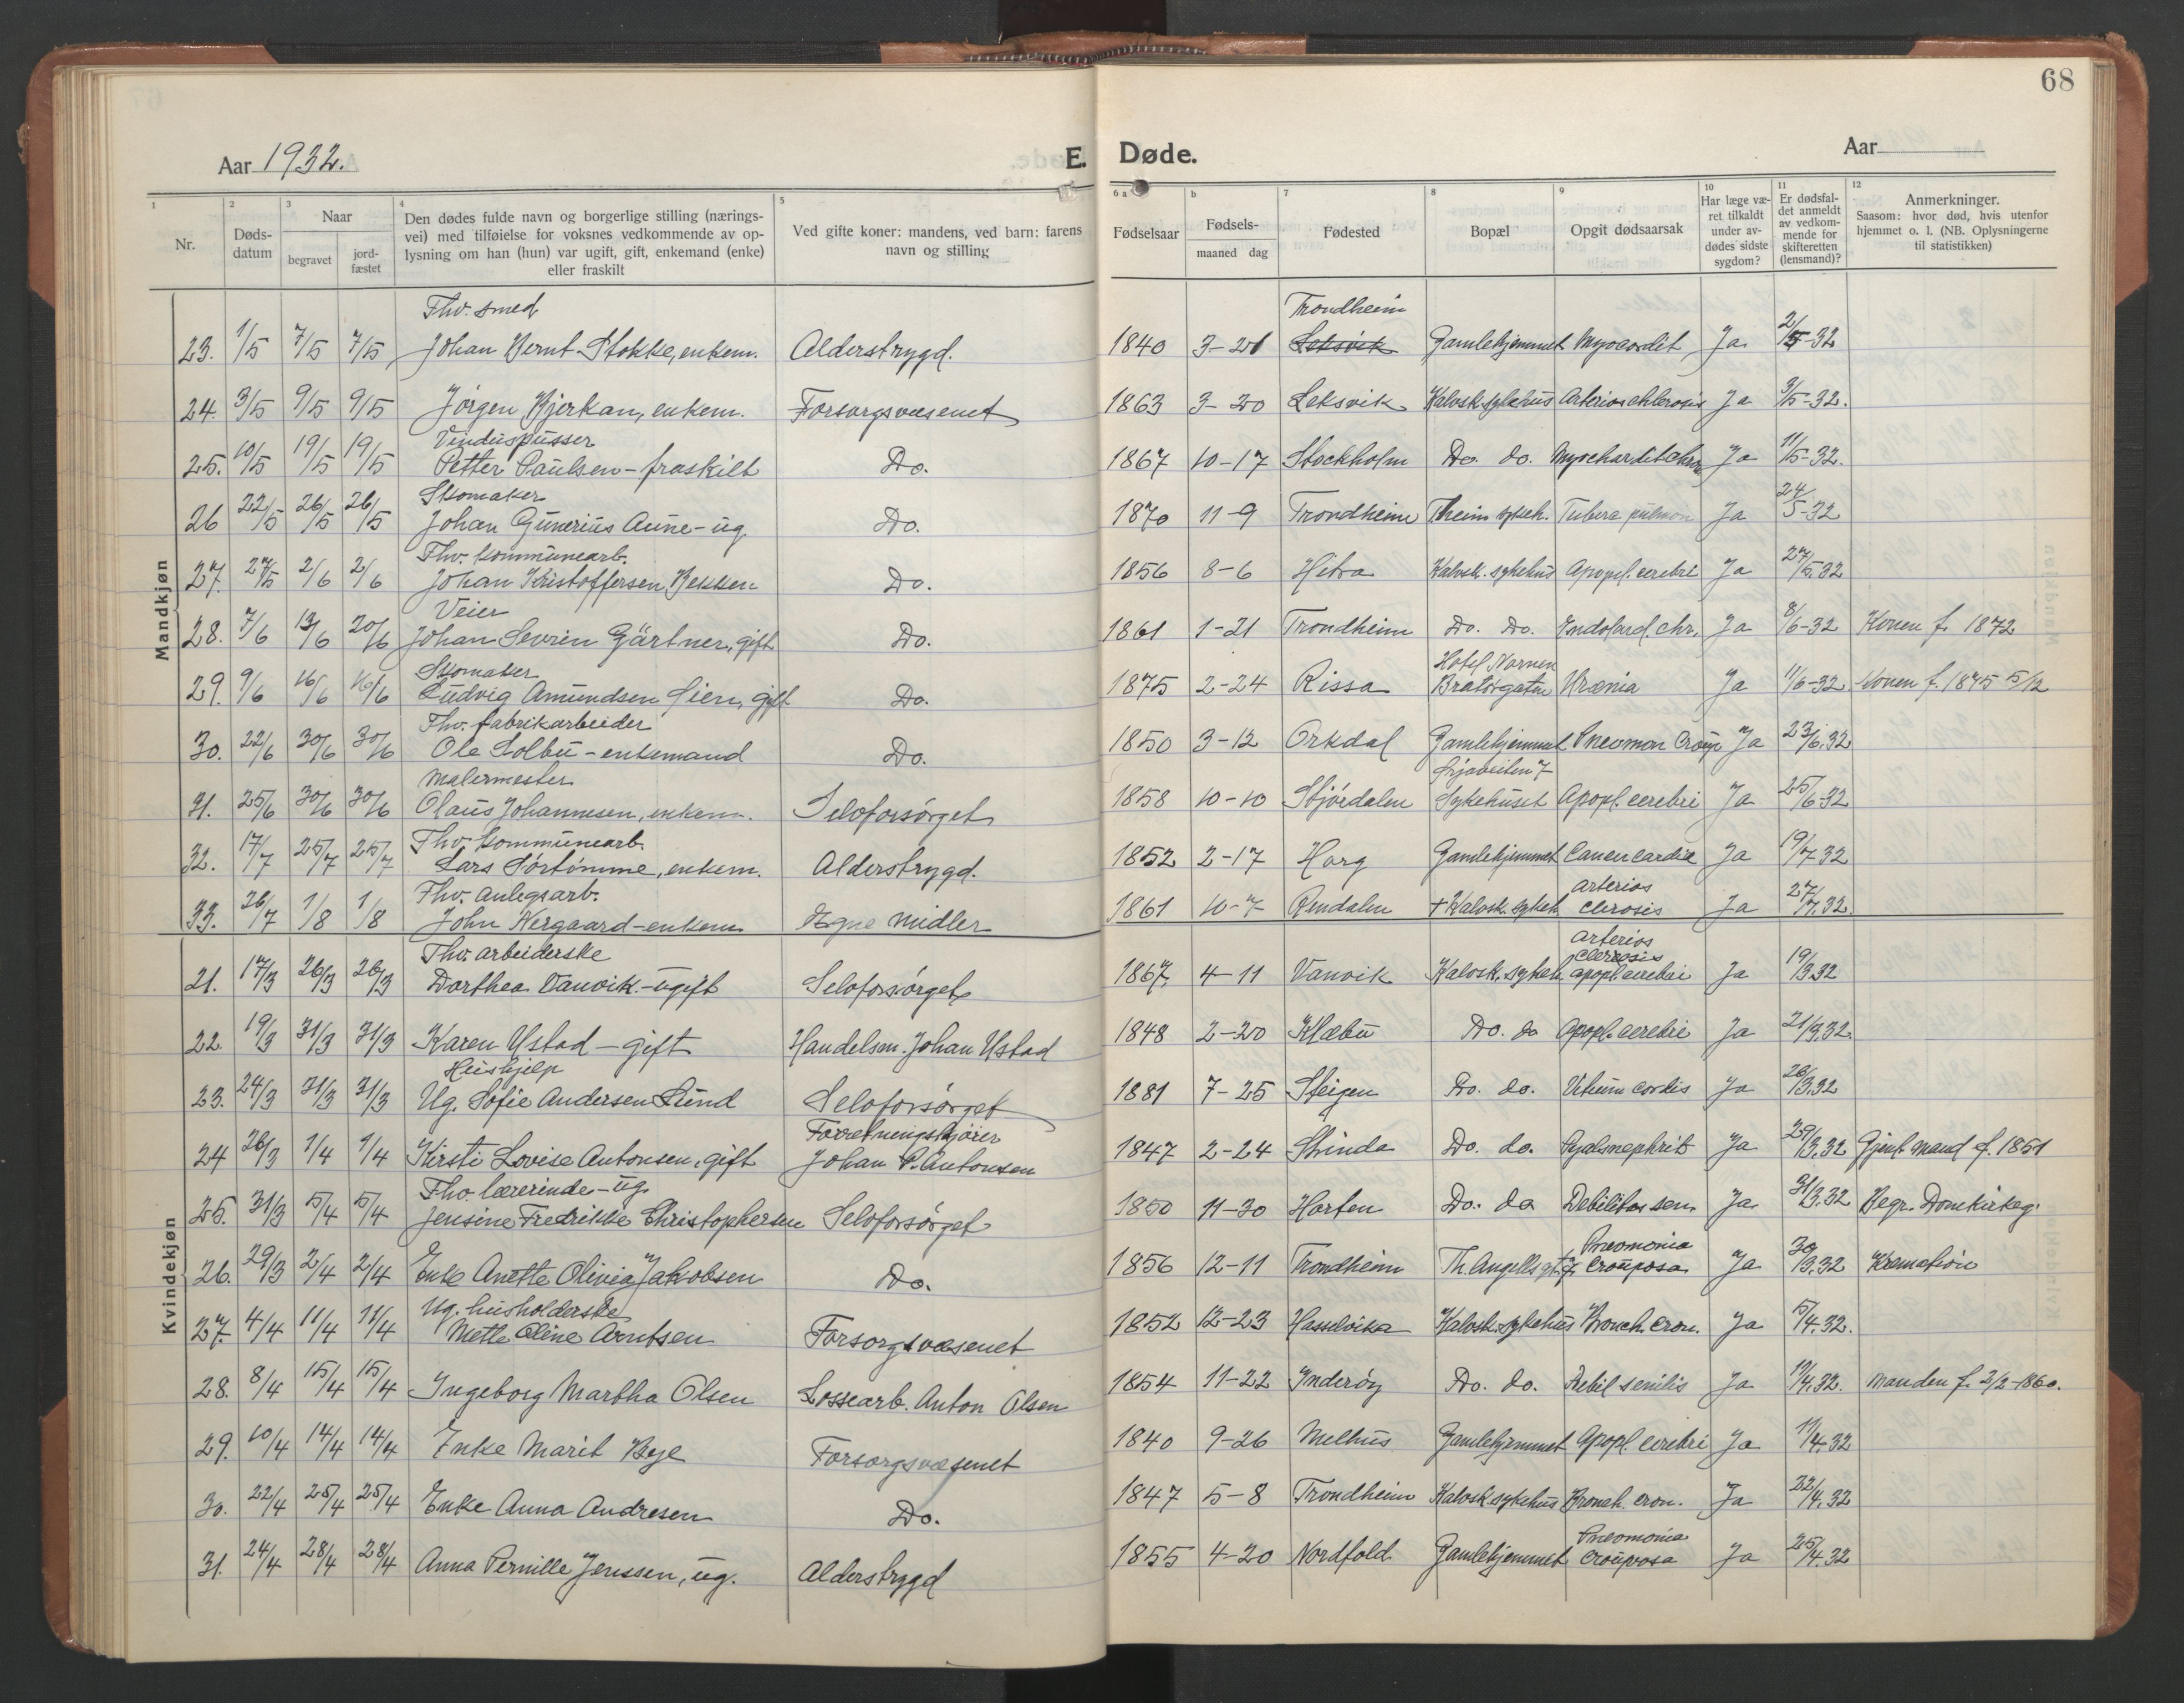 68
Aar 1932.
E. Døde.
Aar
1 2 3 4 5 6 a b 7 8 9 10 11 12
Nr.
Døds-
datum
Naar
begravet
jord-
fæstet
Den dødes fulde navn og borgerlige stilling (nærings-
vei) med tilføielse for voksnes vedkommende av op-
lysning om han (hun) var ugift, gift, enkemand (enke)
eller fraskilt
Ved gifte koner: mandens, ved barn: farens
navn og stilling
Fødselsaar
Fødsels-
maaned dag
Fødested
Bopæl
Opgit dødsaarsak
Har læge væ-
ret tilkaldt
under av-
dødes sidste
sygdom?
Er dødsfal-
det anmeldt
av vedkom-
mende for
skifteretten
(lensmand)?
Anmerkninger.
Saasom: hvor død, hvis utenfor
hjemmet o. l. (NB. Oplysningerne
til statistikken)
Mandkjøn
Thv. smed Trondheim
23. 1/5 7/5 7/5 Johan Bernt Stokke, enkem. Alderstrygd. 1840 3-21 Leksvik Gamlehjemmet Myocardit Ja 2/5-32
24. 3/5 9/5 9/5 Jörgen Bjerkan, enkem. Forsorgsvæsenet 1863 3-20 Leksvik Kalvsk. sykehus Arteriosclerosis Ja 3/5-32.
Vinduspusser
25. 10/5 19/5 19/5 Petter Paulsen - fraskilt Do. 1867 10-17 Stockholm Do. do. Ja 11/5-32.
Skomaker
26 22/5 26/5 26/5 Johan Gunerius Aune - ug. Do. 1870 11-9 Trondheim Theim sykeh. Tuberc pulmon Ja 24/5-32
Thv. kommunearb.
27. 27/5 2/6 2/6 Johan Kristoffersen Bekken Do. 1856 8-6 Hitra Kalvsk. sykehus Apopl. cerebri Ja 27/5.32
Veier
28. 7/6 13/6 20/6 Johan Sevrin Gärtner, gift Do. 1861 1-21 Trondheim Do. Do. Ja 8/6-32 Konen f. 1872
Skomaker Hotel Nornen
29. 9/6 16/6 16/6 Ludvig Amundsen Lien, gift Do. 1875 2-24 Rissa Bratörgaten Uræmia Ja 11/6-32 Konen f. 1875 5/12
Thv. fabrikarbeider
30. 22/6 30/6 30/6 Ole Solbu - enkemand Do. 1850 3-12 Orkdal Gamlehjemmet Pneomon Croup Ja 23/6.32
Malermester
31. 25/6 30/6 30/6 Olaus Johannesen, enkem. Selvforsörget 1858 10-10 Stjördalen Sykehuset Apopl. cerebri Ja 25/6-32
Thv. kommunearb.
32. 17/7 25/7 25/7 Lars Sörtömme, enkem. Alderstrygd. 1852 2-17 Horg Gamlehjemmet Cancer cardia Ja 19/7 32
Thv. anlegsarb. Arterios
33. 26/7 1/8 1/8 John Vergaard - enkem. Egne midler 1861 10-7 Rendalen + Kalvsk. sykeh. clerosis Ja 27/7.32.
Kvindekjøn
Thv. arbeiderske Arterios clerosis
21. 17/3 26/3 26/3 Dorthea Vanvik - ugift Selvforsörget 1867 4-11 Vanvik Kalvsk. sykeh. apopl. cerebri Ja 19/3.32
22. 19/3 31/3 31/3 Karen Ustad - gift Handelsm. Johan Ustad 1848 2-20 Klæbu Do. do Apopl. cerebri Ja 21/3.32.
Hushjelp
23. 24/3 31/3 31/3 Ug. Sofie Andersen Lund Selvforsörget 1881 7-25 Steigen Do. do. Vitium cordis Ja 26/3.32
Forretningsförer
24 26/3 1/4 1/4 Kirsti Lovise Antonsen, gift Johan P. Antonsen 1847 2-24 Strinda Do. do. Ja 29/3.32 Gjenl. mand f. 1851
Thv. lærerinde - ug.
25. 31/3 5/4 5/4 Jensine Fredrikke Christophersen Selvforsörget 1850 11-30 Horten Do. do Debilitas sen. Ja 31/3.32 Begr. Domkirkeg.
Pneomonia
26. 29/3 2/4 2/4 Enke Anette Olivia Jakobsen Do. 1856 12-11 Trondheim Th. Angells gt. Crouposa Ja 30/3.32 Kremation
Ug. husholderske
27. 4/4 11/4 11/4 Mette Oline Arntsen Forsorgsvæsenet 1852 12-23 Hasselvika Kalvsk. sykehus Bronch. cron. Ja 5/4.32.
28. 8/4 15/4 15/4 Ingeborg Martha Olsen Lossearb. Anton Olsen 1854 11-22 Inderöy Do. do. Debil senilis Ja 11/4.32. Manden f. 2/2-1860.
29. 10/4 14/4 14/4 Enke Marit Bye Forsorgsvæsenet 1840 9-26 Melhus Gamlehjemmet Apopl. cerebri Ja 11/4.32
30. 22/4 25/4 25/4 Enke Anna Andresen Do. 1847 5-8 Trondheim Kalvsk sykehus Bronch. cron. Ja 22/4.32
Pneomonia
31. 24/4 28/4 28/4 Anna Pernille Jenssen, ug. Alderstrygd 1855 4-20 Nordfold Gamlehjemmet Crouposa Ja 25/4.32